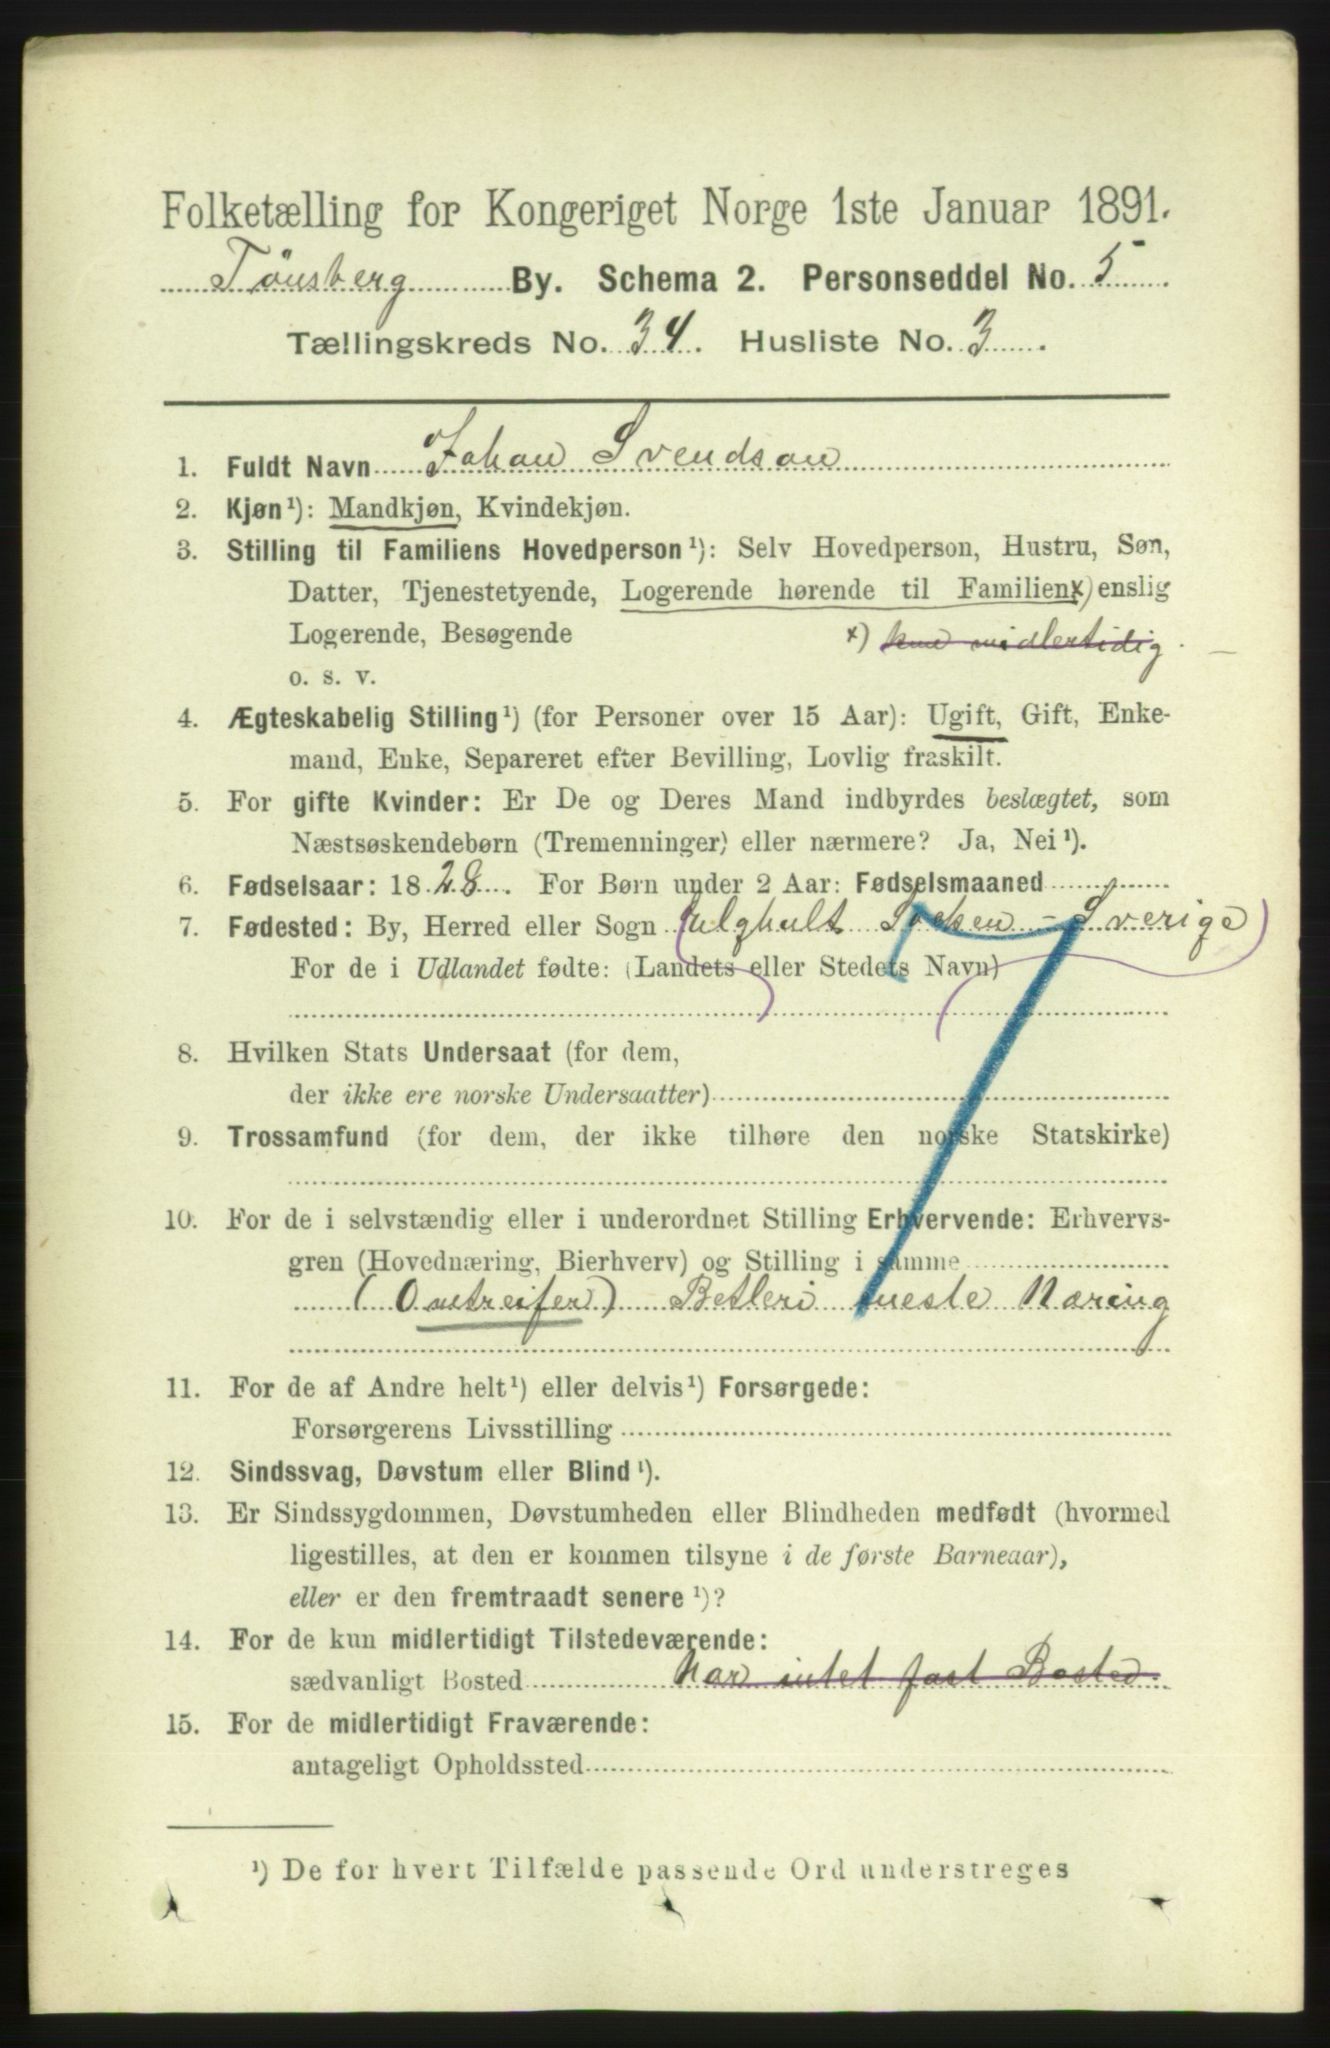 Folketælling for Kongeriget Norge 1ste Januar 1891.
Tönsberg By. Schema 2. Personseddel No. 5
Tællingskreds No. 34. Husliste No. 3.
1. Fuldt Navn Johan Svendson
2. Kjøn¹): Mandkjøn, Kvindekjøn.
3. Stilling til Familiens Hovedperson¹): Selv Hovedperson, Hustru, Søn,
Datter, Tjenestetyende, Logerende hørende til Familien x) enslig
Logerende, Besøgende x) kun midlertidig.
o. s. v.
4. Ægteskabelig Stilling¹) (for Personer over 15 Aar): Ugift, Gift, Enke-
mand, Enke, Separeret efter Bevilling, Lovlig fraskilt.
5. For gifte Kvinder: Er De og Deres Mand indbyrdes beslægtet, som
Næstsøskendebørn (Tremenninger) eller nærmere? Ja, Nei¹).
6. Fødselsaar: 1828. For Børn under 2 Aar: Fødselsmaaned
7. Fødested: By, Herred eller Sogn Socken - Sverige
For de i Udlandet fødte: (Landets eller Stedets Navn)
7
8. Hvilken Stats Undersaat (for dem,
der ikke ere norske Undersaatter)
9. Trossamfund (for dem, der ikke tilhøre den norske Statskirke)
10. For de i selvstændig eller i underordnet Stilling Erhvervende: Erhvervs-
gren (Hovednæring, Bierhverv) og Stilling i samme
(Omtreifer) Betleri neste Næring
11. For de af Andre helt¹) eller delvis¹) Forsørgede:
Forsørgerens Livsstilling
12. Sindssvag, Døvstum eller Blind¹).
13. Er Sindssygdommen, Døvstumheden eller Blindheden medfødt (hvormed
ligestilles, at den er kommen tilsyne i de første Barneaar),
eller er den fremtraadt senere¹)?
14. For de kun midlertidigt Tilstedeværende:
sædvanligt Bosted Har intet fast Bosted.
15. For de midlertidigt Fraværende:
antageligt Opholdssted
¹) De for hvert Tilfælde passende Ord understreges